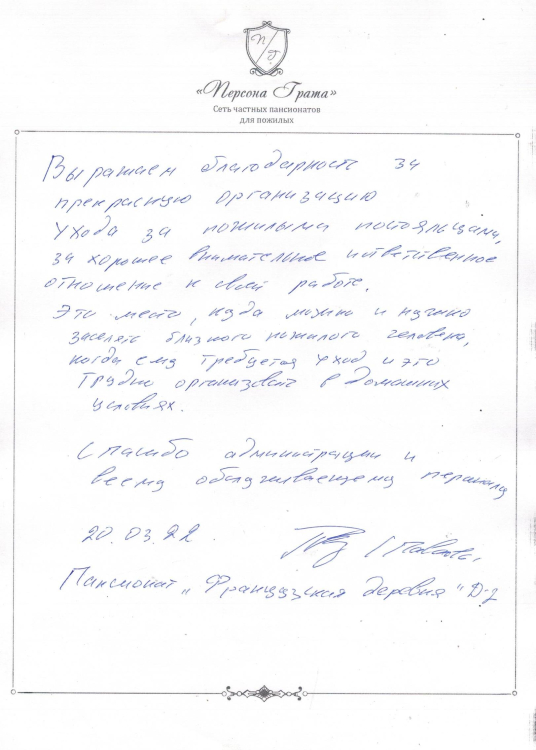 П/Г
«Персона Грата»
Сеть частных пансионатов
для пожилых
Выражаем благодарность за
прекрасную организацию
ухода за пожилыми постояльцами,
за хорошее внимательное и ответственное
отношение к своей работе.
Это место, куда можно и нужно
заселять близкого пожилого человека,
когда ему требуется уход и это
трудно организовать в домашних
условиях.
Спасибо администрации и
всему обслуживающему персоналу
20.03.22
Пансионат „Французская деревня" Д-2